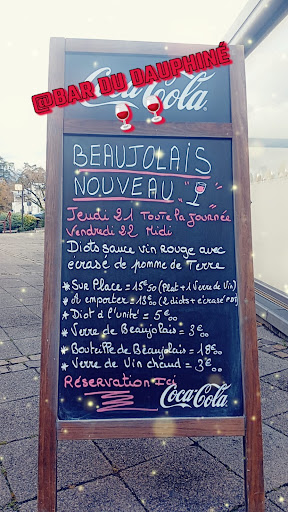 @BAR DU DAUPHINÉ
Coca-Cola
BEAUJOLAIS
NOUVEAU
Jeudi 21 Toute la journée
Vendredi 22 Midi
Diots sauce vin Rouge avec
écrasé de pomme de Terre
* Sur Place = 15€50 (Plat + 1 Verre de Vin)
* A emporter = 13€00 (2 diots + écrasé PDT)
* Diot à l'unité = 5€00
* Verre de Beaujolais = 3€00
* Bouteille de Beaujolais = 18€00
* Verre de Vin chaud = 3€00
Réservation Ici
Coca-Cola